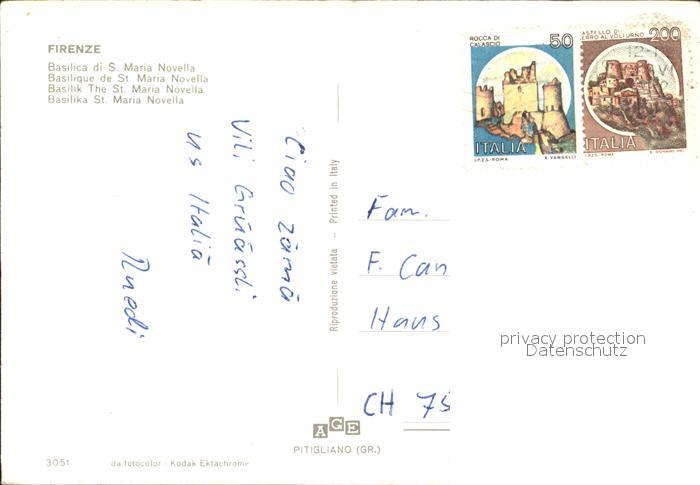 FIRENZE
Basilica di S. Maria Novella
Basilique de St. Maria Novella
Basilik The St. Maria Novella
Basilika St. Maria Novella
Ciao zämä
Vili Grüässli
us Italiä
Ruedi
Riproduzione vietata - Printed in Italy
ROCCA DI
CALASCIO
50
ITALIA
I.P.Z.S.-ROMA E. VANGELLI
CASTELLO DI
CERRO AL VOLTURNO
200
ITALIA
I.P.Z.S.-ROMA
Fam.
F. Can
Hans
CH 75
privacy protection
Datenschutz
AGE
PITIGLIANO (GR.)
3051 da fotocolor : Kodak Ektachrome